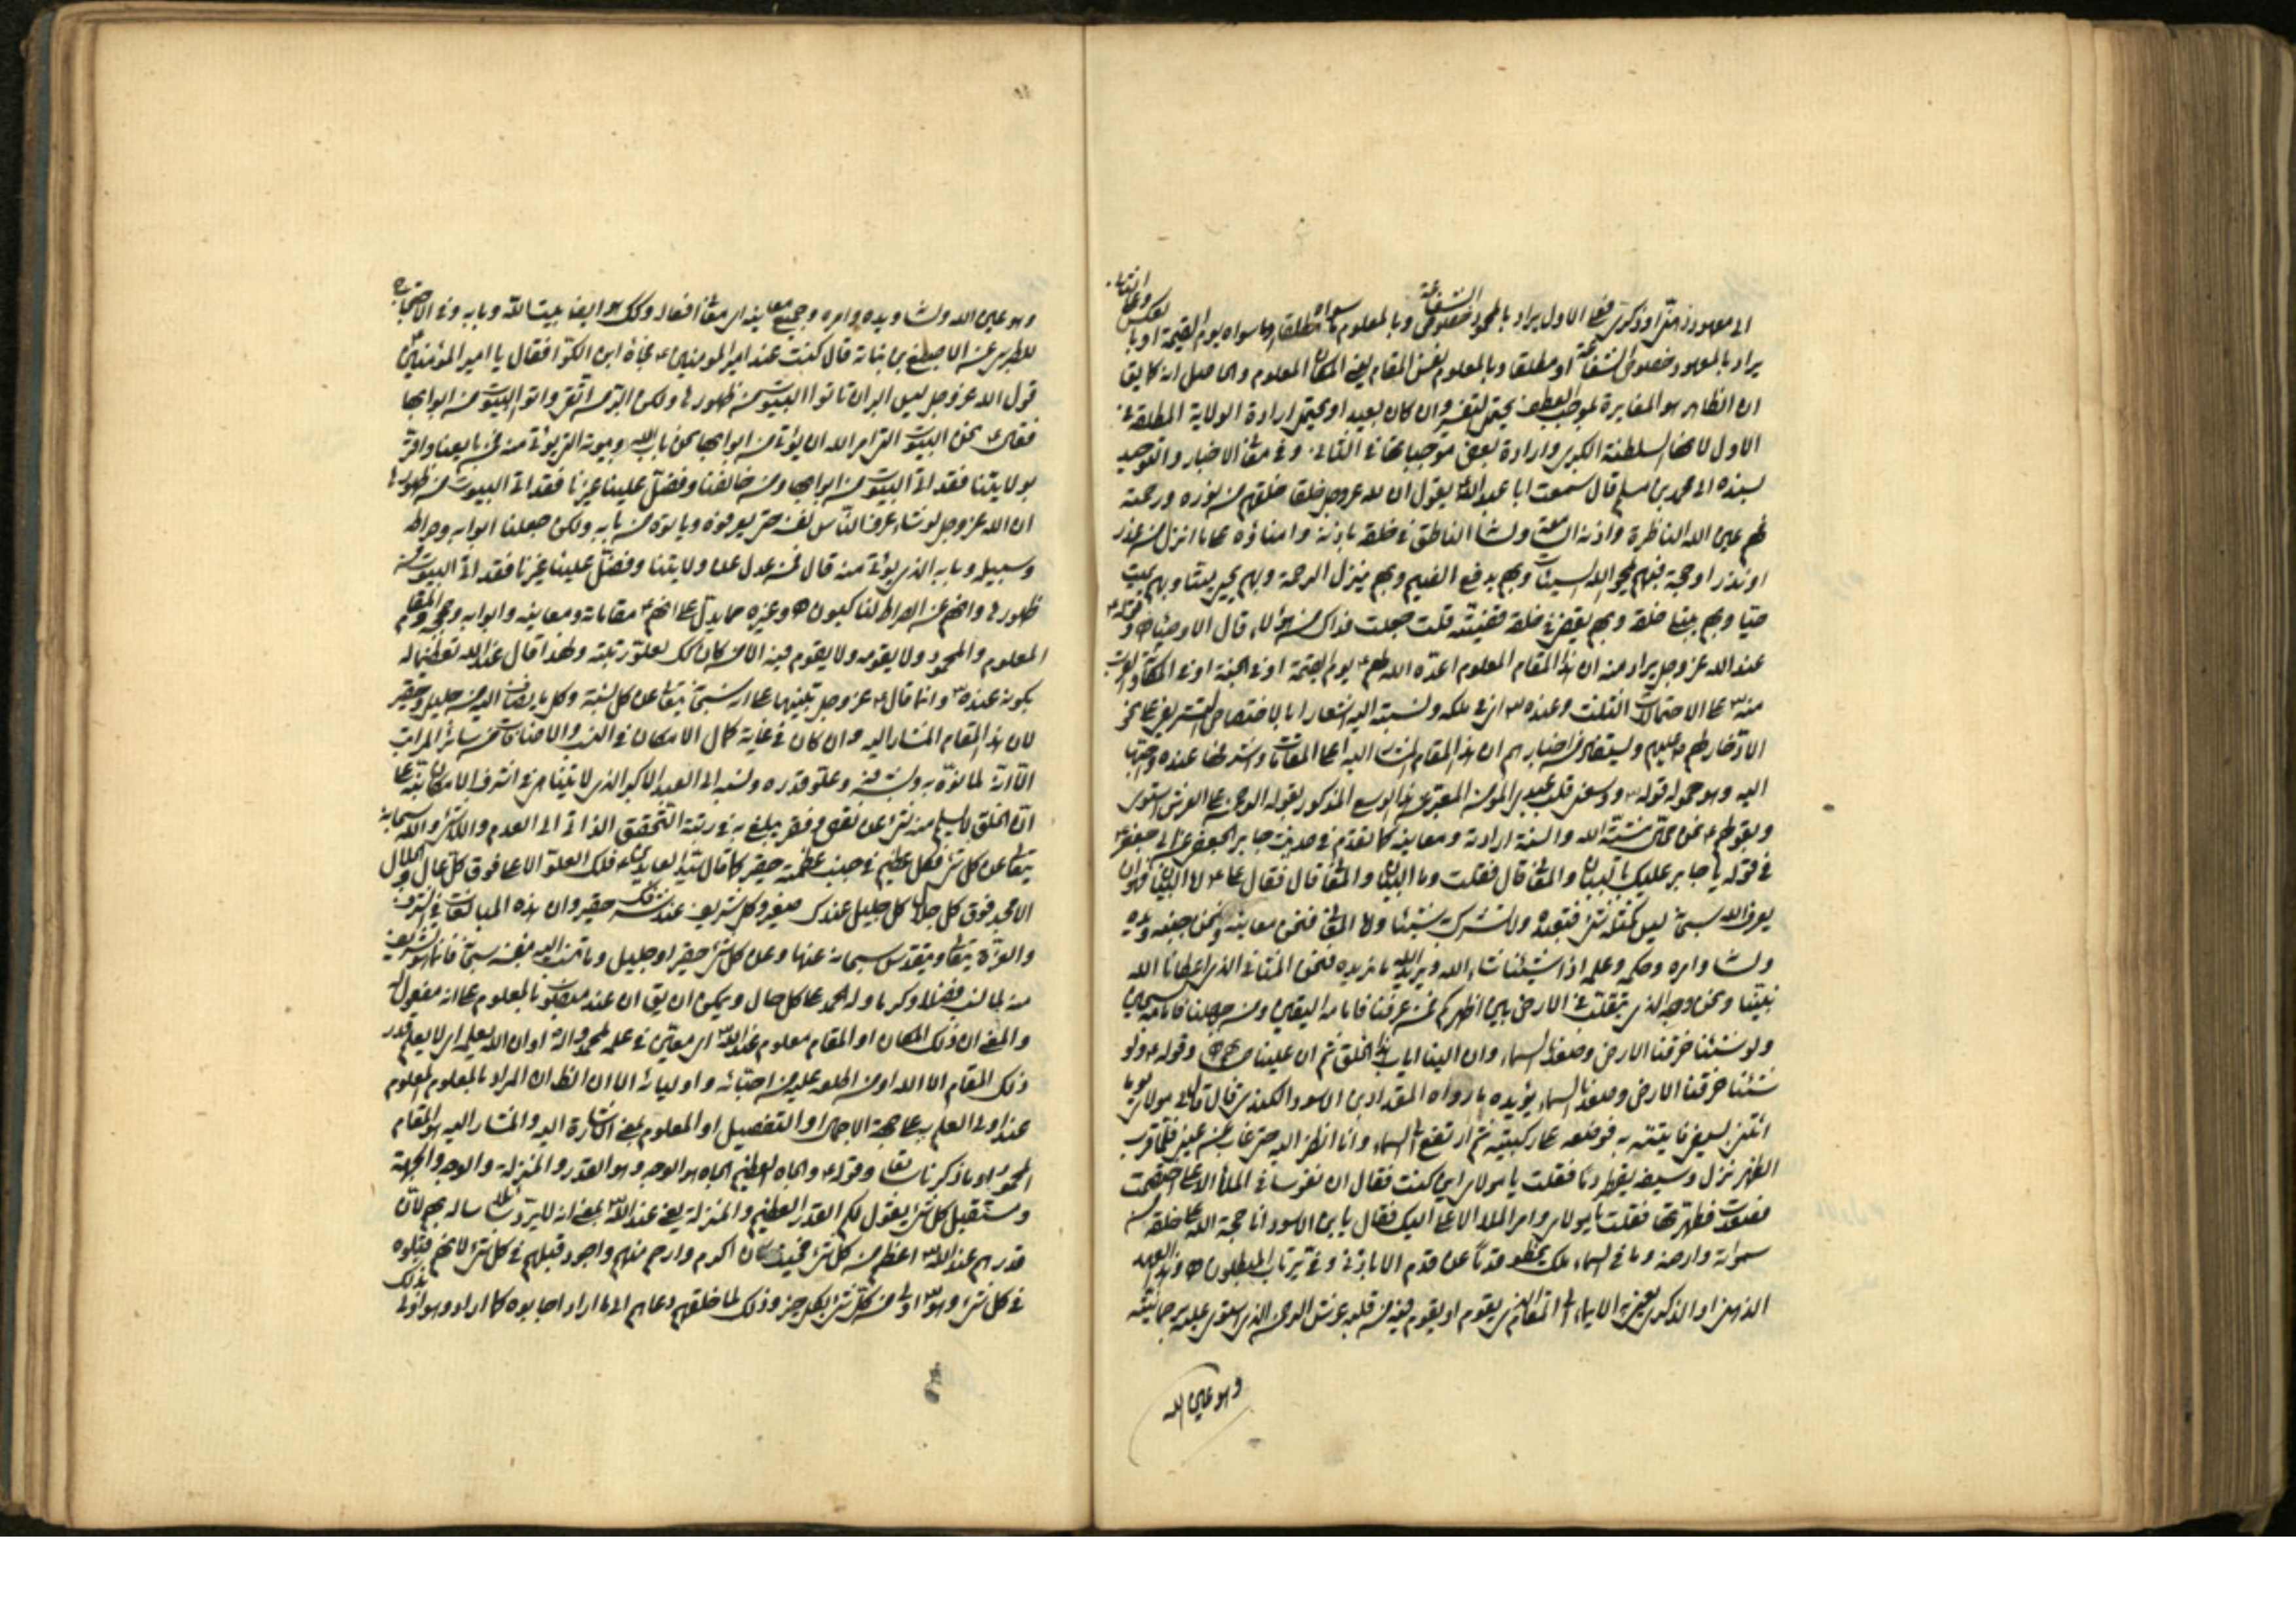 الى معهود ذهنى او ذكرى فعلى الاول يراد بالمحمود خصوص الشفاعة وبالمعلوم ما سواه مطلقا او ما سواه يوم القيمة او بالعكس وعلى الثانى
يراد بالمعهود خصوص الشفاعة او مطلقا وبالمعلوم نفس المقام يعنى المكان المعلوم والحاصل انه كما يق
ان الظاهر هو المغايرة لموجب العطف يحتمل التفسير وان كان بعيد او يحتمل ارادة الولاية المطلقة فى
الاول لانها السلطنة الكبرى وارادة بعض موجباتها فى الثانى وفى معانى الاخبار والتوحيد
بسنده الى محمد بن مسلم قال سمعت ابا عبد الله يقول ان لله عز وجل خلقا خلقهم من نوره ورحمته
فهم عين الله الناظرة واذنه السامعة ولسانه الناطق فى خلقه باذنه وامناؤه على ما انزل من عذر
او نذر او حجة فبهم يمحو الله السيئات وبهم يدفع الضيم وبهم ينزل الرحمة وبهم يحيى ميتا وبهم يميت
حيا وبهم يبتلى خلقه وبهم يقضى فى خلقه قضيته قلت جعلت فداك من هؤلاء قال الاوصياء وقوله
عند الله عز وجل يراد منه ان هذا المقام المعلوم اعده الله لهم يوم القيمة او فى الجنة او فى المكانة والقرب
منه على الاحتمالات الثلث وعنده اى فى ملكه ونسبته اليه اشعارا بالاختصاص التشريفى على نحو
الادخار لهم عليهم ويستفاد من اخبارهم ان هذا المقام المشار اليه اعلى المقامات واشرفها عنده واحبها
اليه وهو حمله قوله ووسعنى قلب عبدى المؤمن المعبر عن هذا الوسع المذكور بقوله الرحمن على العرش استوى
وبقولهم نحن محال مشية الله والسنة ارادته ومعانيه كما تقدم فى حديث جابر الجعفى عن ابى جعفر
فى قوله يا جابر عليك بالبيان والمعانى قال فقلت وما البيان والمعانى قال فقال على اما البيان فهو ان
تعرف الله سبحانه ليس كمثله شئ فتعبده ولا تشرك به شيئا واما المعانى فنحن معانيه ونحن جنبه ويده
ولسانه وامره وحكمه وعلمه اذا شئنا شاء الله ويريد الله ما نريده فنحن المثانى الذى اعطانا الله
نبينا ونحن وجه الله الذى يتقلب فى الارض بين اظهركم فمن عرفنا فامامه اليقين ومن جهلنا فامامه سجين
ولو شئنا خرقنا الارض وصعدنا السماء وان الينا اياب هذا الخلق ثم ان علينا حسابهم وقوله ولو
شئنا خرقنا الارض وصعدنا السماء يؤيده ما رواه المقداد بن الاسود الكندى قال قال لى مولاى يوما
ائتنى بسيفى فاتيته به فوضعه على ركبتيه ثم ارتفع الى السماء وانا انظر اليه حتى غاب عن عينى فلما قرب
الظهر نزل وسيفه يقطر دما فقلت يا مولاى اين كنت فقال ان نفوسا فى الملأ الاعلى اختصمت
فصعدت فطهرتها فقلت يا مولاى وامر الملأ الاعلى اليك فقال يا بن الاسود انا حجة الله على خلقه من
سمواته وارضه وما فى السماء ملك يخطو قدما عن قدم الا باذنى وفى يرتاب المبطلون وفى العهد
الذهنى او الذكرى يعنى به الايماء الى المقام الذى يقوم او يقوم فيه من قلبه عرش الرحمن الذى استوى عليه برحمانيته
وهو عين الله
وهو عين الله ولسانه ويده وامره وجميع معانيه اى معانى افعاله وكذلك هو ايضا بيت الله وبابه وفى الاحتجاج
للطبرسى عن الاصبغ بن نباتة قال كنت عند امير المؤمنين فجاءه ابن الكوا فقال يا امير المؤمنين
قول الله عز وجل ليس البر ان تاتوا البيوت من ظهورها ولكن البر من اتقى واتوا البيوت من ابوابها
فقال نحن البيوت التى امر الله ان يؤتى من ابوابها نحن باب الله وبيوته التى يؤتى منه فمن تابعنا واقر
بولايتنا فقد اتى البيوت من ابوابها ومن خالفنا وفضل علينا غيرنا فقد اتى البيوت من ظهورها
ان الله عز وجل لو شاء عرف الناس نفسه حتى يعرفوه وياتوه من بابه ولكن جعلنا ابوابه وصراطه
وسبيله وبابه الذى يؤتى منه قال فمن عدل عن ولايتنا وفضل علينا غيرنا فقد اتى البيوت من
ظهورها وانهم عن الصراط لناكبون وغيره مما يدل على انهم مقاماته ومعانيه وابوابه وحججه والمقام
المعلوم والمحمود ولا يقومه ولا يقوم فيه الا من كان كذلك لعلو رتبته ولهذا قال عند الله تعظيما له
بكونه عنده وانما قال عز وجل تنبيها على انه سبحانه يتعالى عن كل نسبة وكل ما يضاف اليه من جليل وحقير
لان هذا المقام المشار اليه وان كان فى غاية كمال الامكان فى الذات والاضافات من سائر المراتب
الا انه لما نوه به وبشرفه وعلو قدره ونسبه الى العبد الاكبر الذى لا يتناهى فى اشرف الامكان نبه على
ان الخلق لا يسلم منه شئ عن نقص وفقر يبلغ به فى رتبة التحقق الذاتى الى العدم واللاشئ والله سبحانه
يتعالى عن كل شئ فكل عظيم فى جنب عظمته حقير كما قال سيد العابدين فلك العلو الاعلى فوق كل عال والجلال
الامجد فوق كل جلال كل جليل عندك صغير وكل شريف عند شرفك حقير وان هذه المبالغات فى الشرف
والعزة يتعالى ويتقدس سبحانه عنها وعن كل شئ حقير او جليل وما نسب اليه نفسه سبحانه فانما هو تشريف
منه لما نسب فضلا وكرما وله الحمد على كل حال ويمكن ان يق ان عند منصوب بالمعلوم على انه مفعول له
والمعنى ان ذلك المكان او المقام معلوم عند الله اى معين فى علمه لمحمد واله او ان الله يعلمه اى لا يعلم قدر
ذلك المقام الا الله او من اطلعه عليه من احبائه واوليائه الا ان الظاهر ان المراد بالمعلوم المعلوم
عند اولى العلم به على جهة الاجمال او التفصيل او المعلوم بمعنى الاشارة اليه والمشار اليه هو المقام
المحمود او ما ذكرنا سابقا وقوله والجاه العظيم الجاه هو الوجه وهو القدر والمنزلة والوجه والجهة
ومستقبل كل شئ يقول لكم القدر العظيم والمنزلة يعنى عند الله بمعنى انه لا يرد سائلا ساله بهم لان
قدرهم عند الله اعظم من كل شئ فحيث كان اكرم وارحم منهم واجود قبلهم فى كل شئ لانهم قبلوه
فى كل شئ وهو اولى من كل شئ بكل خير وذلك لما خلقهم دعاهم الى ما اراد اجابوه كما اراد وهو اولى بذلك